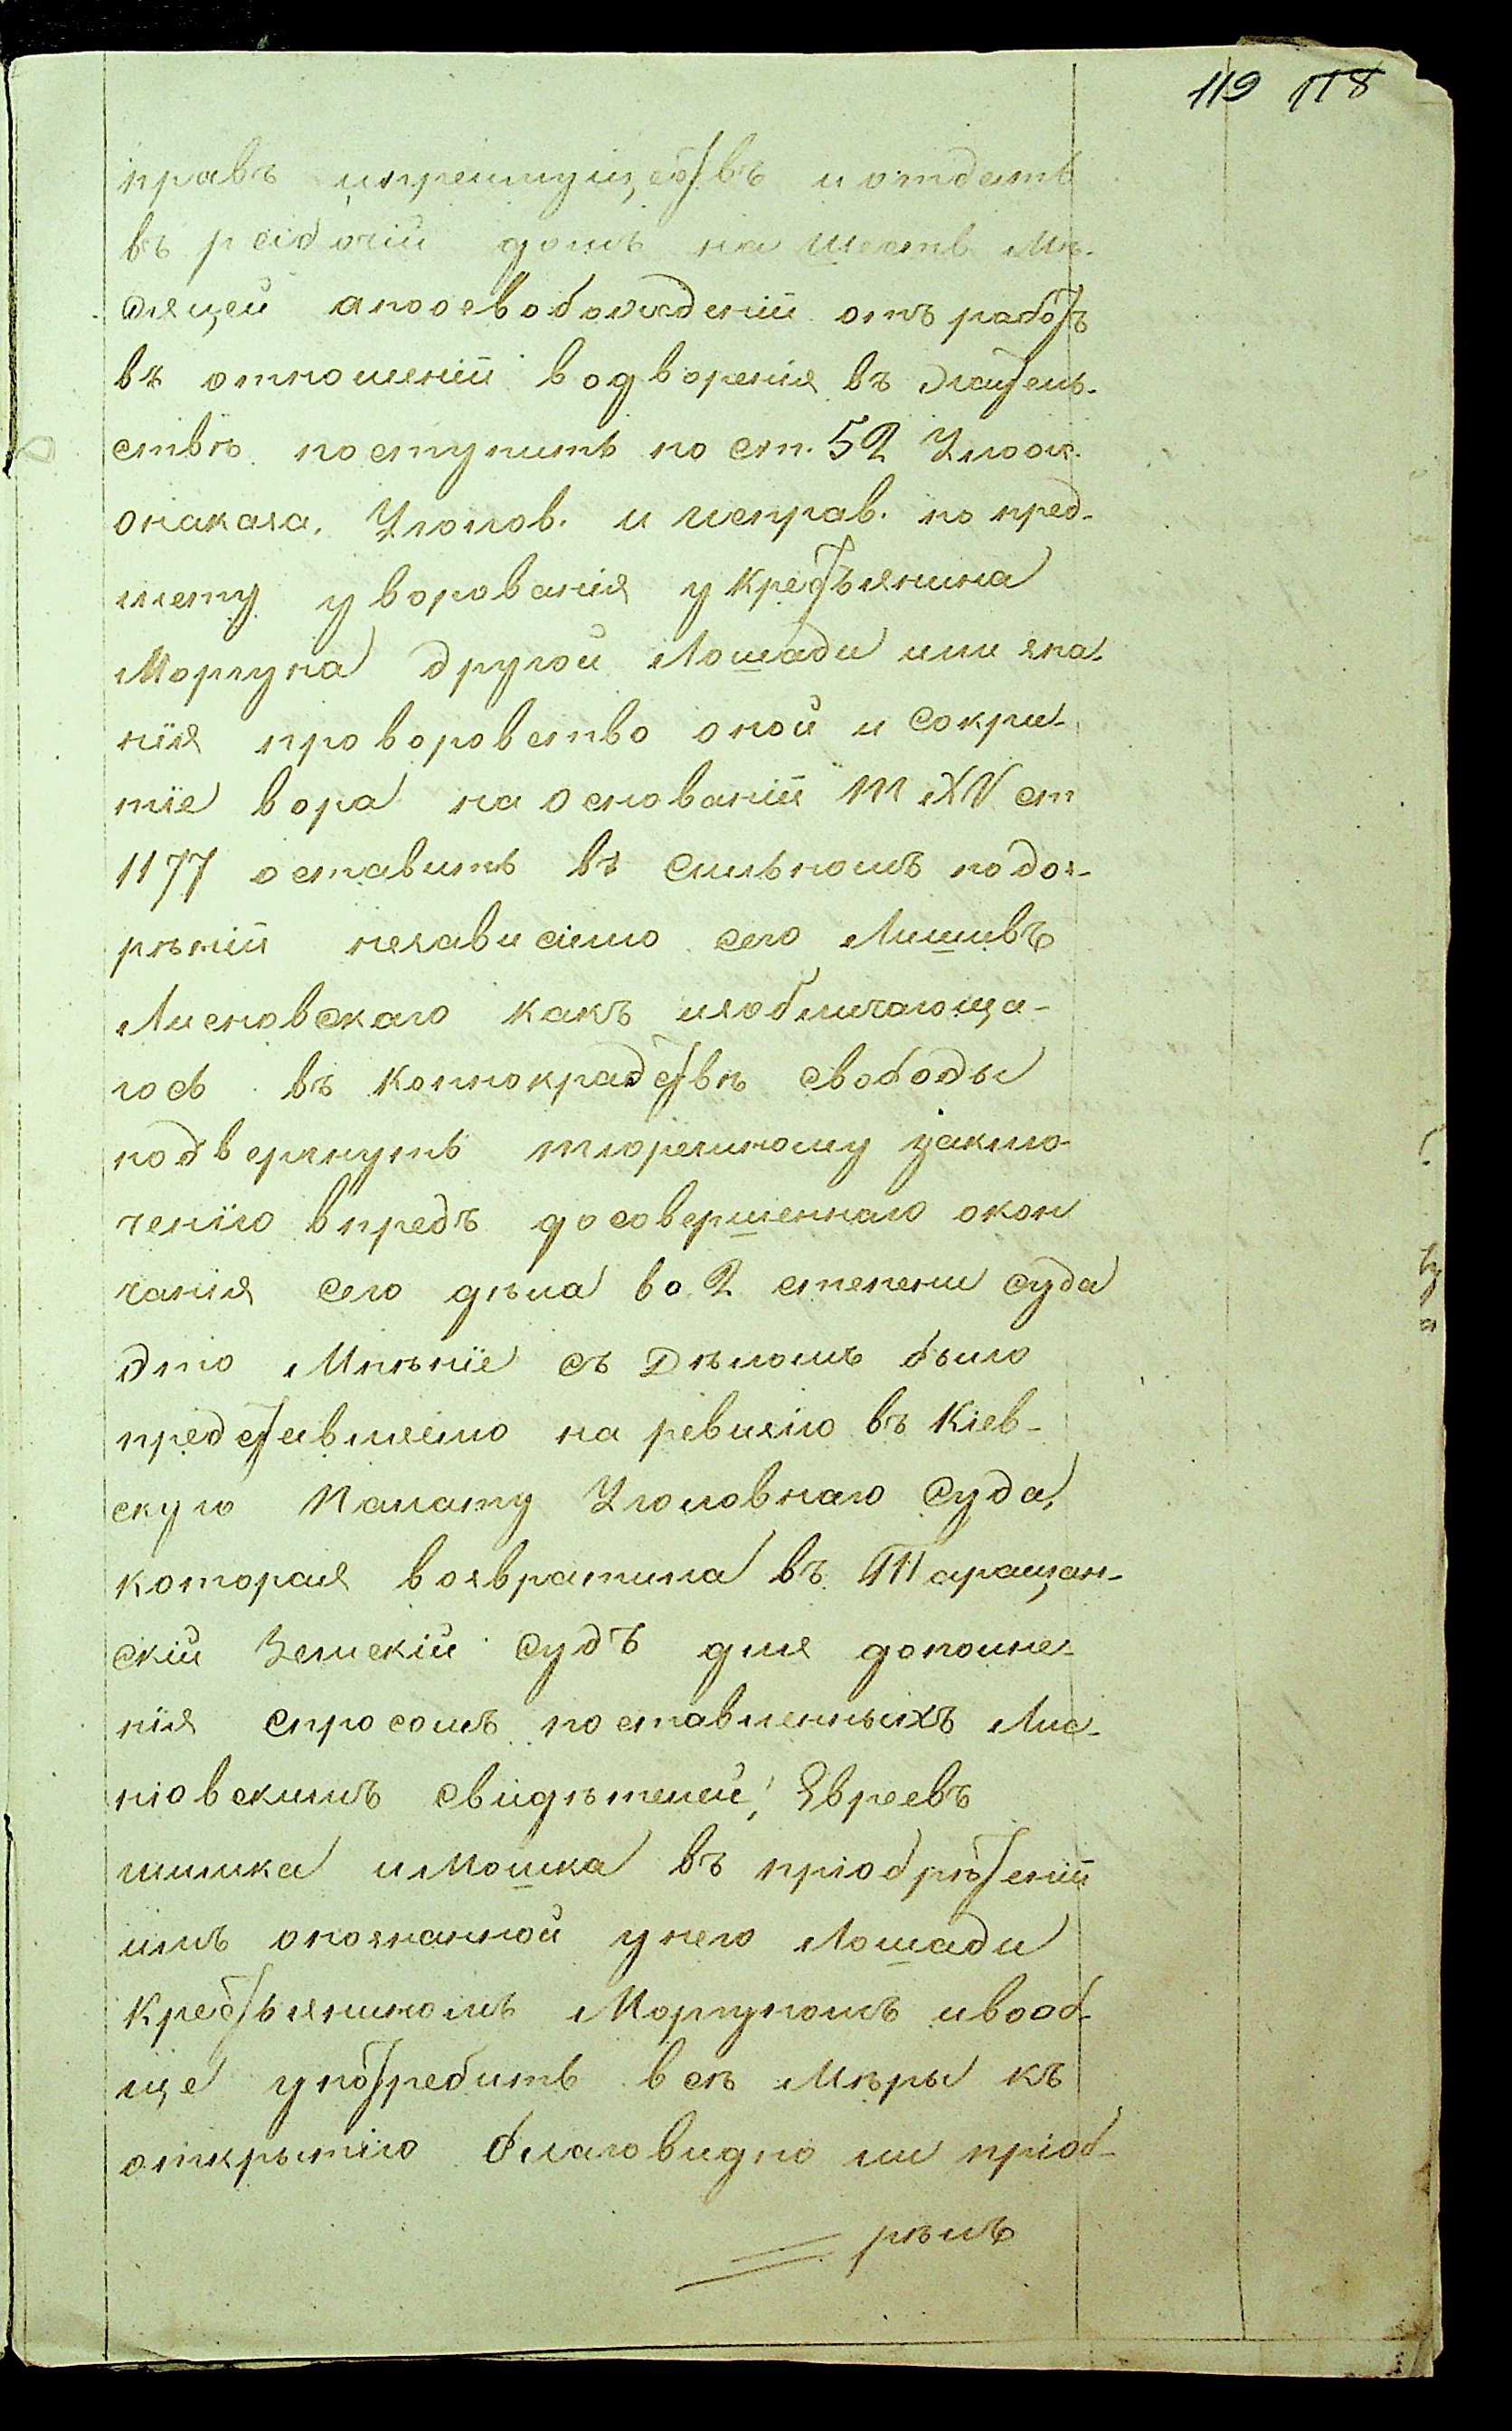 119 118
правъ ипреимуществъ и отдать
въ рабочій домъ на Шесть Мѣ-
сяцей апоосвобожденіи отъ работъ
въ отношеніи водворенія въ жител-
ствѣ поступить по ст. 52 Улож.
онаказа. Уголов. и исправ. по пред-
мету уворованія у Крестьянина
Моргуна другой Лошади или зна-
нія проворовство оной и Сокри-
тіе вора на основаніи Т XV ст
1177 оставить въ сильномъ подоз-
рѣніи независимо сего Лишивъ
Лисновскаго какъ изобличающа-
гось въ Конокрадствѣ свободы
подвергнуть тюремному заклю-
ченію впредъ досовершеннаго окон
чанія сего дѣла во 2 степени суда
Это Мнѣніе съ Дѣломъ было
представляемо на ревизію въ Кіев-
скую Палату Уголовнаго Суда,
которая возвратила въ Таращан-
скій Земскій Судъ для дополне-
нія спросомъ поставленныхъ Лис-
новскимъ свидѣтелей, Евреевъ
шимка иМошка въ пріобрѣтеніи
имъ опознанной унего Лошади
Крестьяниномъ Моргуномъ ивооб-
ще употребить всѣ Мѣры къ
открытію благовидно ли пріоб-
рѣлъ